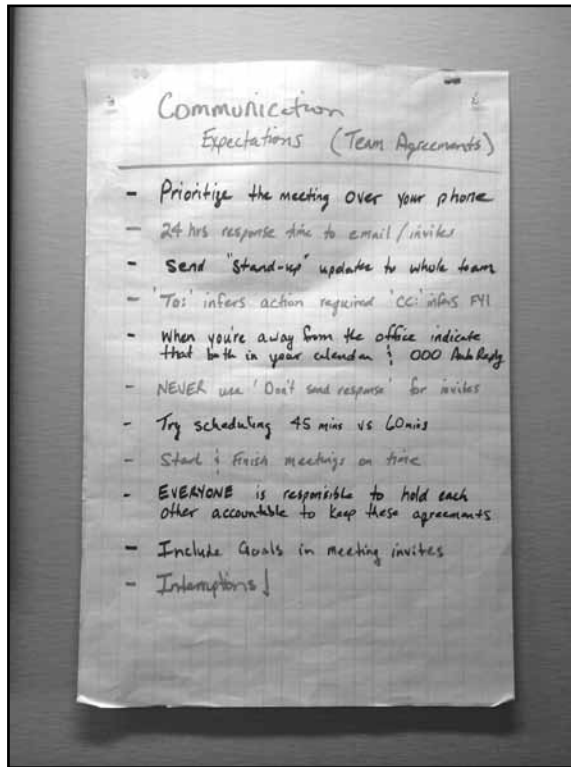 Communication
Expectations (Team Agreements)
- Prioritize the meeting over your phone
- 24 hrs response time to email/invites
- Send "Stand-up" updates to whole team
- 'To:' infers action required 'CC:' infers FYI
- When you're away from the office indicate
that both in your calendar & OOO Auto Reply
- NEVER use 'Don't send response' for invites
- Try scheduling 45 mins vs 60mins
- Start & Finish meetings on time
- EVERYONE is responsible to hold each
other accountable to keep these agreements
- Include Goals in meeting invites
- Interruptions ↓